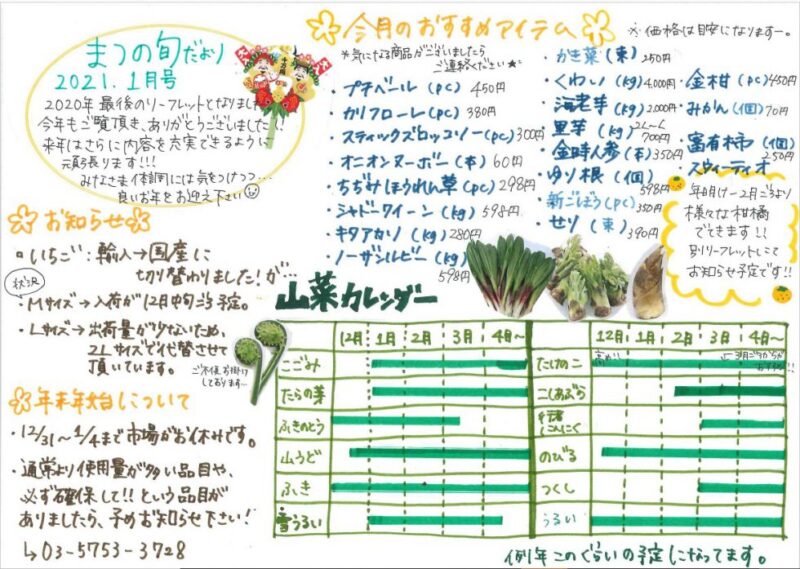 まつの旬だより
2021.1月号
2020年 最後のリーフレットとなりました
今年もご覧頂き、ありがとうございました!!
来年はさらに内容を充実できるように
頑張ります!!!
みなさま体調には気をつけつつ…
良いお年をお迎え下さい
お知らせ
いちご:輸入→国産に
切り替わりました!が…
状況
・Mサイズ→入荷が12月中旬ごろ予定。
・Lサイズ→出荷量が少ないため、
2Lサイズで代替させて
頂いています。
ご不便お掛け
しております…
年末年始について
・12/31~1/4まで市場がお休みです。
・通常より使用量が多い品目や、
必ず確保して!!という品目が
ありましたら、予めお知らせ下さい!
↳03-5753-3728
今月のおすすめアイテム
※価格は目安になりますー。
*気になる商品がございましたら
ご連絡ください★
・プチベール(pc) 450円
・カリフローレ(pc) 380円
・スティックブロッコリー(pc)300円
・オニオンヌーボー(本)60円
・ちぢみほうれん草(pc)298円
・シャドークイーン(kg)598円
・キタアカリ(kg)280円
・ノーザンルビー(kg)
598円
・かき菜(束)250円
・くわい(kg)4,000円
・海老芋(kg)2,000円
・里芋(kg)2L~L
700円
・金時人参(本)350円
・ゆり根(個)
598円
・新ごぼう(pc)350円
・せり(束)390円
・金柑(pc)450円
・みかん(個)70円
・富有柿(個)
250円
・スウィーティオ
年明け~2月ごろより
様々な柑橘
でてきます!!
別リーフレットにて
お知らせ予定です!!
山菜カレンダー
12月 1月 2月 3月 4月~
こごみ
たらの芽
ふきのとう
山うど
ふき
雪うるい
12月 1月 2月 3月 4月~
たけのこ 高い!
こしあぶら
行者にんにく
のびる
つくし
うるい
例年このぐらいの予定になってます。